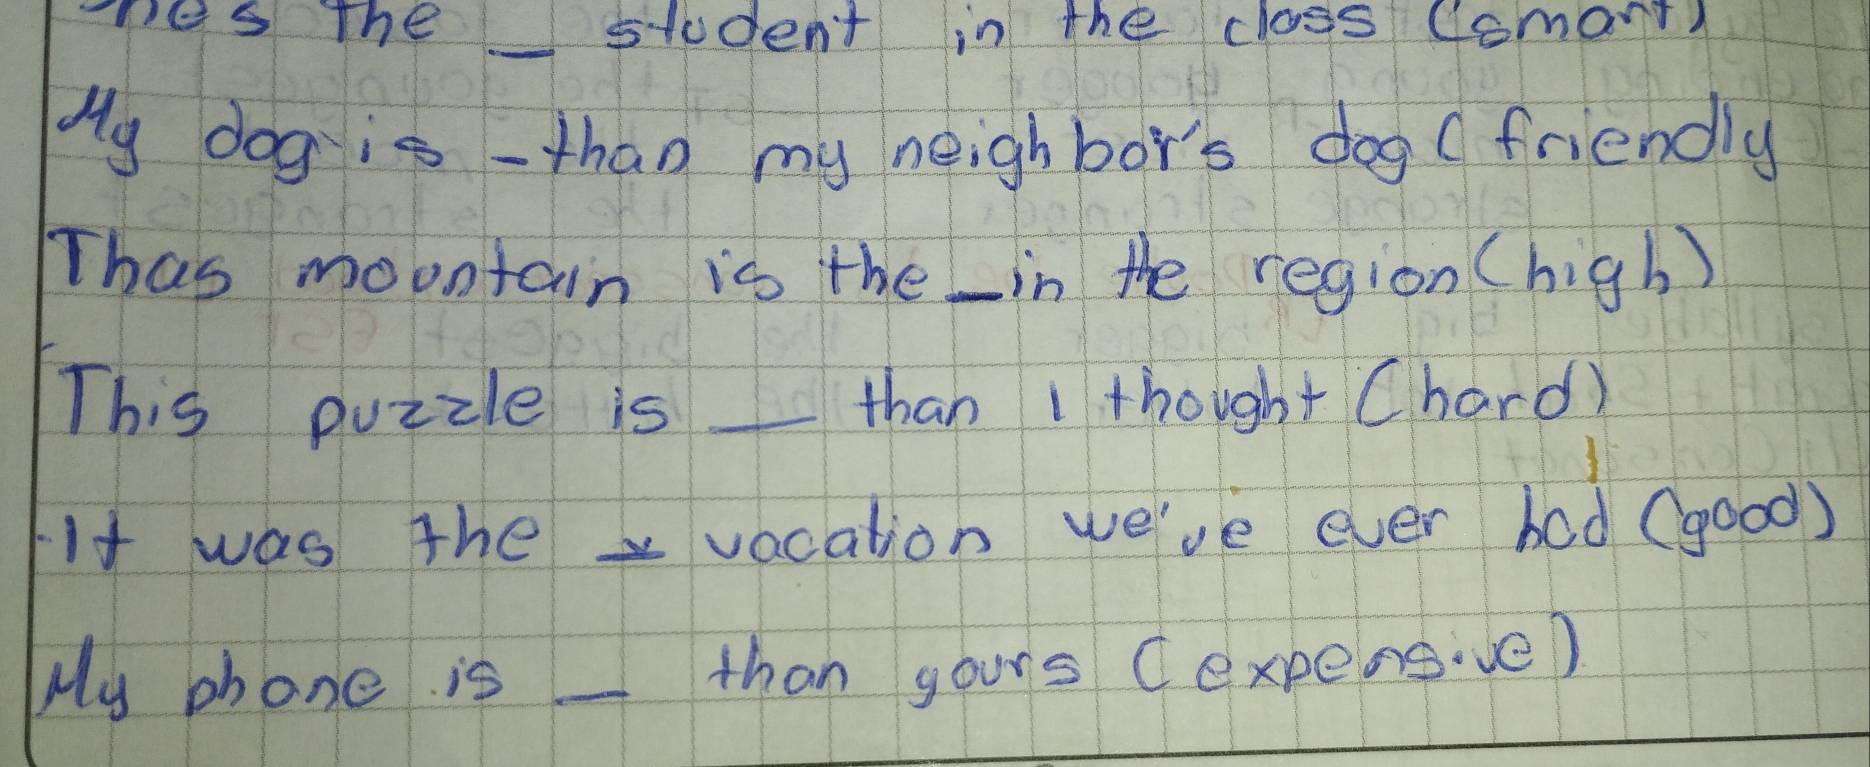 the _ student in the class (smart)
My dog is - than my neighbor's dog ( friendly
Thas mountain is the _ in the region (high)
This puzzle is _ than I thought (hard)
It was the _ vacation we've ever had (good)
My phone is _ than yours (expensive)